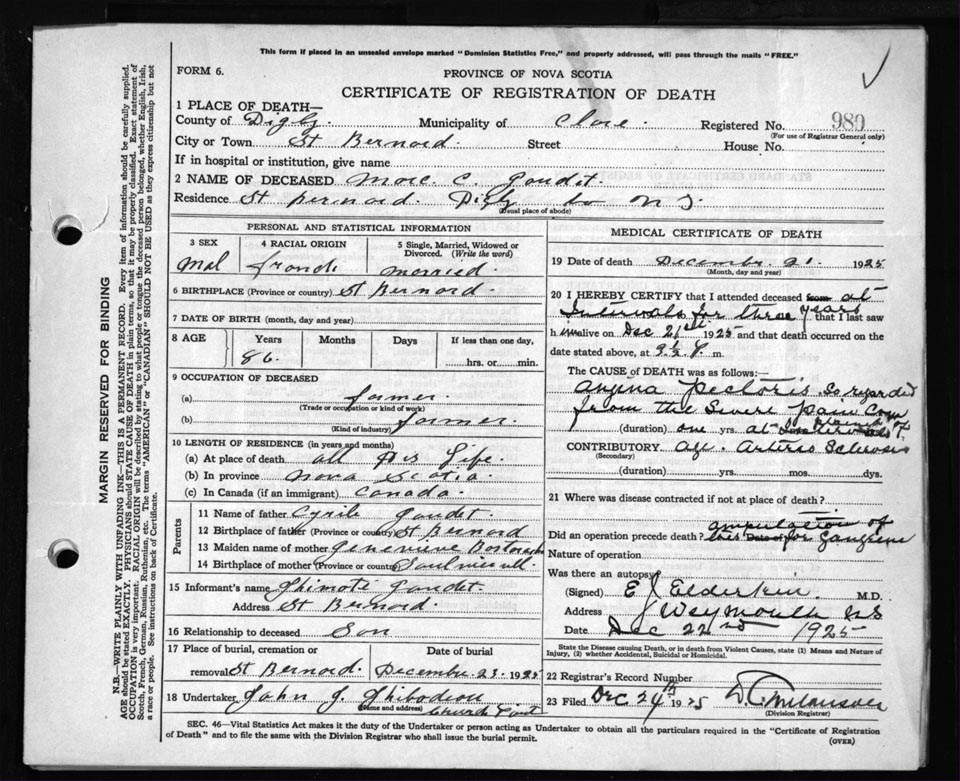 This form if placed in an unsealed envelope marked "Dominion Statistics Free," and properly addressed, will pass through the mails "FREE."
FORM 6.
PROVINCE OF NOVA SCOTIA
CERTIFICATE OF REGISTRATION OF DEATH
1 PLACE OF DEATH—
County of Digby. Municipality of Clare. Registered No. 989
(For use of Registrar General only)
City or Town St Bernard. Street House No.
If in hospital or institution, give name
2 NAME OF DECEASED Marc C. Gaudet.
Residence St Bernard. Digby Co N S.
(Usual place of abode)
PERSONAL AND STATISTICAL INFORMATION
3 SEX 4 RACIAL ORIGIN 5 Single, Married, Widowed or Divorced. (Write the word)
Mal french married.
6 BIRTHPLACE (Province or country) St Bernard.
7 DATE OF BIRTH (month, day and year)
8 AGE Years Months Days If less than one day,
86. hrs. or min.
9 OCCUPATION OF DECEASED
(a) farmer.
(Trade or occupation or kind of work)
(b) farmer.
(Kind of industry)
10 LENGTH OF RESIDENCE (in years and months)
(a) At place of death all his life.
(b) In province Nova Scotia.
(c) In Canada (if an immigrant) Canada.
Parents
11 Name of father Cyrile Gaudet.
12 Birthplace of father (Province or country) St Bernard
13 Maiden name of mother Genevieve
14 Birthplace of mother (Province or country)
15 Informant's name Thimote Gaudet.
Address St Bernard.
16 Relationship to deceased Son
17 Place of burial, cremation or removal Date of burial
St Bernard. December 23. 1925
18 Undertaker John J. Thibodeau
(Name and address) Church Point
MEDICAL CERTIFICATE OF DEATH
19 Date of death December. 21. 1925
(Month, day and year)
20 I HEREBY CERTIFY that I attended deceased from at
Intervals for three years that I last saw
him alive on Dec 21st 1925 and that death occurred on
date stated above, at 9½ P. m.
The CAUSE OF DEATH was as follows:—
Angina Pectoris so regarded
from the Severe pain
(duration) one yrs. at
CONTRIBUTORY Age. Arterio Sclerosis
(Secondary)
(duration) yrs. mos. dys.
21 Where was disease contracted if not at place of death?
amputation of
Did an operation precede death? Date of for Gangrene
Nature of operation
Was there an autopsy
(Signed) E J Elderkin. M.D.
Address Weymouth NS
Date Dec 22nd 1925
State the Disease causing Death, or in death from Violent Causes, state (1) Means and Nature of Injury, (2) whether Accidental, Suicidal or Homicidal.
22 Registrar's Record Number
23 Filed Dec 24th 1925 D. C. Melanson
(Division Registrar)
SEC. 46—Vital Statistics Act makes it the duty of the Undertaker or person acting as Undertaker to obtain all the particulars required in the "Certificate of Registration
of Death" and to file the same with the Division Registrar who shall issue the burial permit.
(OVER)
MARGIN RESERVED FOR BINDING
N.B.—WRITE PLAINLY WITH UNFADING INK—THIS IS A PERMANENT RECORD. Every item of information should be carefully supplied.
AGE should be stated EXACTLY. PHYSICIANS should STATE CAUSE OF DEATH in plain terms, so that it may be properly classified. Exact statement of
OCCUPATION is very important. RACIAL ORIGIN will be described by stating to what people or tongue the deceased person belonged, whether English, Irish,
Scotch, French, German, Russian, Ruthenian, etc. The terms "AMERICAN" or "CANADIAN" SHOULD NOT BE USED as they express citizenship but not
a race or people. See instructions on back of Certificate.